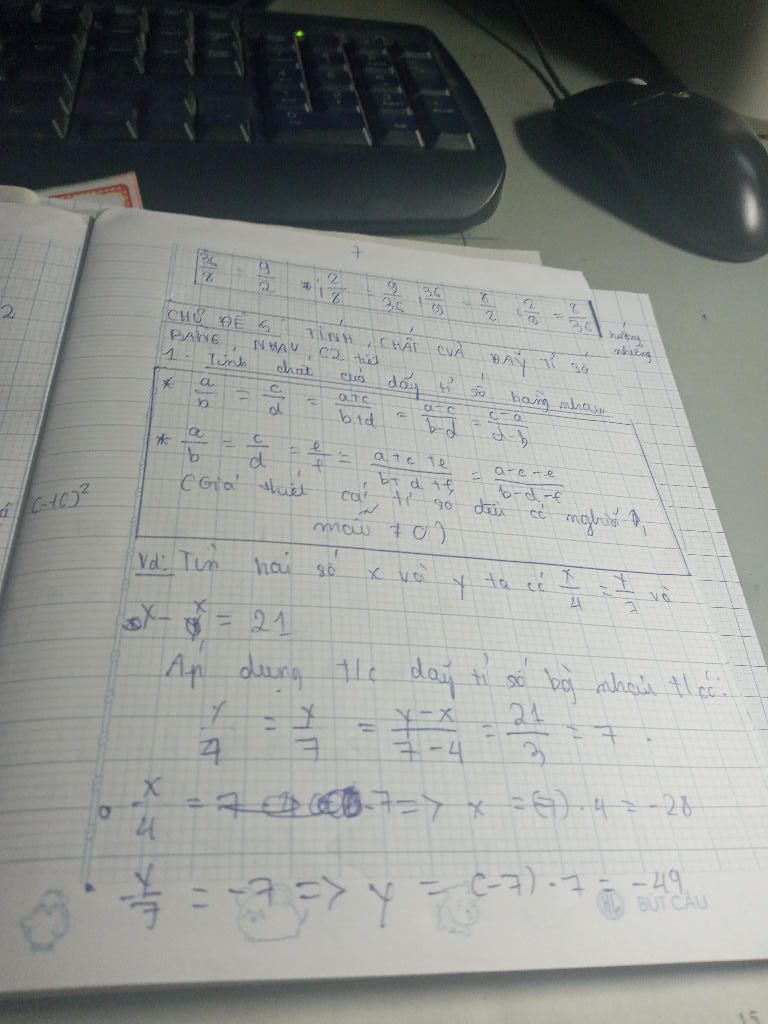 7
36/8 = 9/2 ; 2/8 = 9/36 ; 36/9 = 8/2 ; 2/9 = 8/36 hướng nhiêng
CHỦ ĐỀ 5: TÍNH CHẤT CUẢ DÃY TỈ SỐ
BẰNG NHAU (2 tiết
1. Tính chất cuả dãy tỉ số bằng nhau
* a/b = c/d = a+c/b+d = a-c/b-d = c-a/d-b
* a/b = c/d = e/f = a+c+e/b+d+f = a-c-e/b-d-f
(Giả thiết các tỉ số đều có nghĩa,
mẫu ≠ 0)
Vd: Tìm hai số x và y ta có x/4 = y/7 và
x - = 21
Áp dụng t/c dãy tỉ số bằ nhau t/có:
/4 = y/7 = y-x/7-4 = 21/3 = 7.
x/4 = -7 => x = (-7).4 = -28
y/7 = -7 => y = (-7).7 = -49
BÚT CÂU
15
2
(-10)²